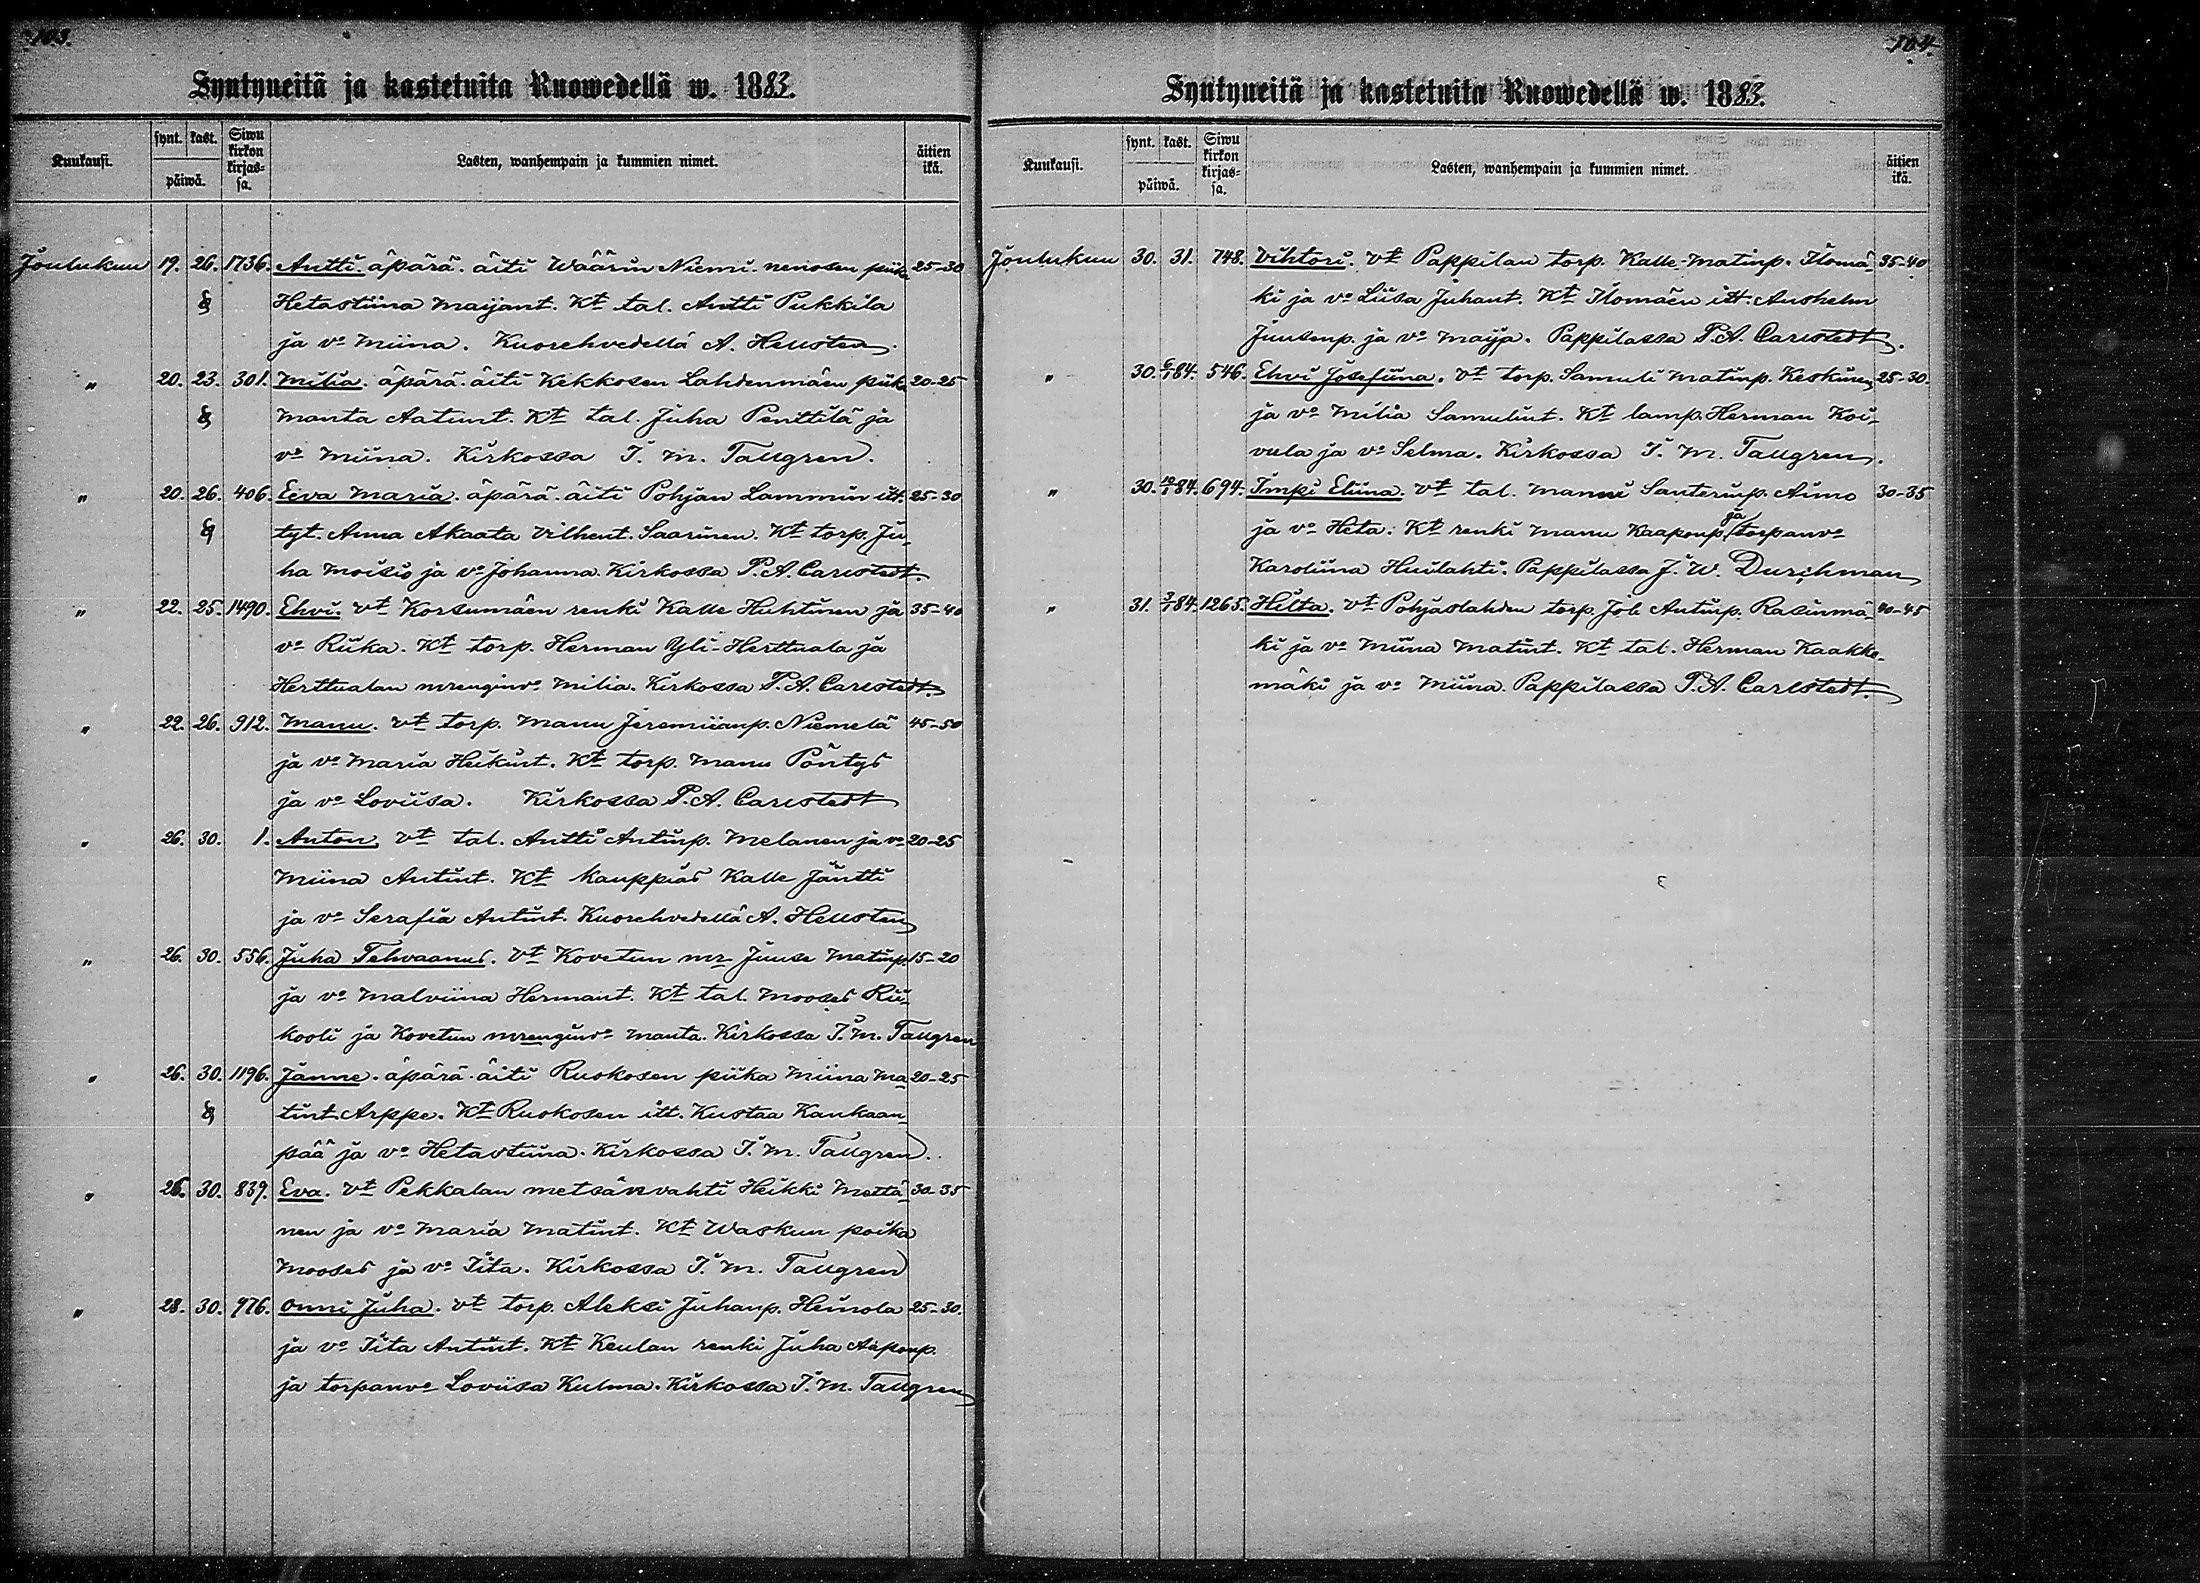 103.
Syntyneitä ja kastetuita Ruowedellä w. 1883.
Kuukausi. synt. kast. päiwä. Siwu kirkon kirjas-sa. Lasten, wanhempain ja kummien nimet. äitien ikä.
Joulukuu 19. 26. 1736. Antti. äpärä. äiti Wäärin Niemi-nenosen piika 25-30
Hetastiina Maijant. Kt tal. Antti Pukkila
ja vo Miina. Kuorehvedellä A. Hellsten.
" 20. 23. 301. Milia. äpärä. äiti Kekkosen Lahdenmäen piika 20-25
Manta Aatunt. Kt tal. Juha Penttilä ja
vo Miina. Kirkossa I. M. Tallgren.
" 20. 26. 406. Eeva Maria. äpärä. äiti Pohjan Lammin itt. 25-30
tyt. Anna Akaata Vilhent. Saarinen. Kt torp. Ju-
ha Moisio ja vo Johanna. Kirkossa P. A. Carlstedt.
" 22. 25. 1490. Ehvi. vt Korsumäen renki Kalle Huhtinen ja 35-40
vo Riika. Kt torp. Herman Yli-Herttuala ja
Herttualan mrenginvo Milia. Kirkossa P. A. Carlstedt.
" 22. 26. 912. Manu. vt torp. Manu Jeremiianp. Niemelä 45-50
ja vo Maria Heikint. Kt torp. Manu Pöntys
ja vo Loviisa. Kirkossa P. A. Carlstedt
" 26. 30. 1. Anton. vt tal. Antti Antinp. Melanen ja vo 20-25
Miina Antint. Kt kauppias Kalle Jäntti
ja vo Serafia Antint. Kuorehvedellä A. Hellsten
" 26. 30. 556. Juha Tehvaanus. vt Kovetun mr Juuse Matinp. 15-20
ja vo Malviina Hermant. Kt tal. Mooses Rii-
kooli ja Kovetun mrenginvo Manta. Kirkossa I. M. Tallgren
" 26. 30. 1196. Janne. äpärä. äiti Ruokosen piika Miina Ma- 20-25
tint. Arppe. Kt Ruokosen itt. Kustaa Kankaan-
pää ja vo Hetastiina. Kirkossa I. M. Tallgren.
" 26. 30. 839. Eva. vt Pekkalan metsänvahti Heikki Mättä- 30-35
nen ja vo Maria Matint. Kt Waskun poika
Mooses ja vo Iita. Kirkossa I. M. Tallgren
" 28. 30. 976. Onni Juha. vt torp. Aleksi Juhanp. Heinola 25-30.
ja vo Iita Antint. Kt Keulan renki Juha Aaponp.
ja torpanvo Loviisa Kulma. Kirkossa I. M. Tallgren
104.
Syntyneitä ja kastetuita Ruowedellä w. 1883.
Kuukausi. synt. kast. päiwä. Siwu kirkon kirjas-sa. Lasten, wanhempain ja kummien nimet. äitien ikä.
Joulukuu 30. 31. 748. Vihtori. vt Pappilan torp. Kalle Matinp. Ilomä- 35-40
ki ja vo Liisa Juhant. Kt Ilomäen itt. Anshelm
Juusenp. ja vo Maija. Pappilassa P. A. Carlstedt.
" 30. 6/1 84. 546. Ehvi Josefiina. vt torp. Samuli Matinp. Keskinen 25-30.
ja vo Milia Samulint. Kt lamp. Herman Koi-
vula ja vo Selma. Kirkossa I. M. Tallgren.
" 30. 10/1 84. 694. Impi Eliina. vt tal. Manni Santerinp. Aimo 30-35
ja vo Heta. Kt renki Manu Kaaponp. ja torpanvo
Karoliina Huilahti. Pappilassa J. W. Durchman
" 31. 3/1 84. 1265. Hilta. vt Pohjaslahden torp. Job Antinp. Rasinmä- 40-45
ki ja vo Miina Matint. Kt tal. Herman Kaakko-
mäki ja vo Miina. Pappilassa P. A. Carlstedt.